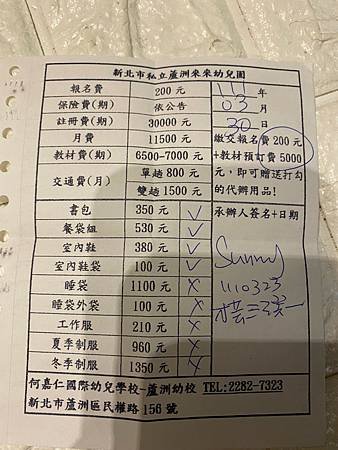 新北市私立蘆洲來來幼兒園
報名費 200 元 111 年
保險費(期) 依公告 03 月
註冊費(期) 30000 元 30 日
月費 11500 元 繳交報名費 200 元
教材費(期) 6500-7000 元 +教材預訂費 5000
交通費(月) 單趟 800 元 元，即可贈送打勾
雙趟 1500 元 的代辦用品!
書包 350 元 ✓ 承辦人簽名+日期
餐袋組 530 元 ✓
室內鞋 380 元 ✓ Sunny
室內鞋袋 100 元 ✓ 1110323
睡袋 1100 元 ×
睡袋外袋 100 元 ×
工作服 210 元 ×
夏季制服 960 元 ×
冬季制服 1350 元 ×
何嘉仁國際幼兒學校-蘆洲幼校 TEL:2282-7323
新北市蘆洲區民權路 156 號